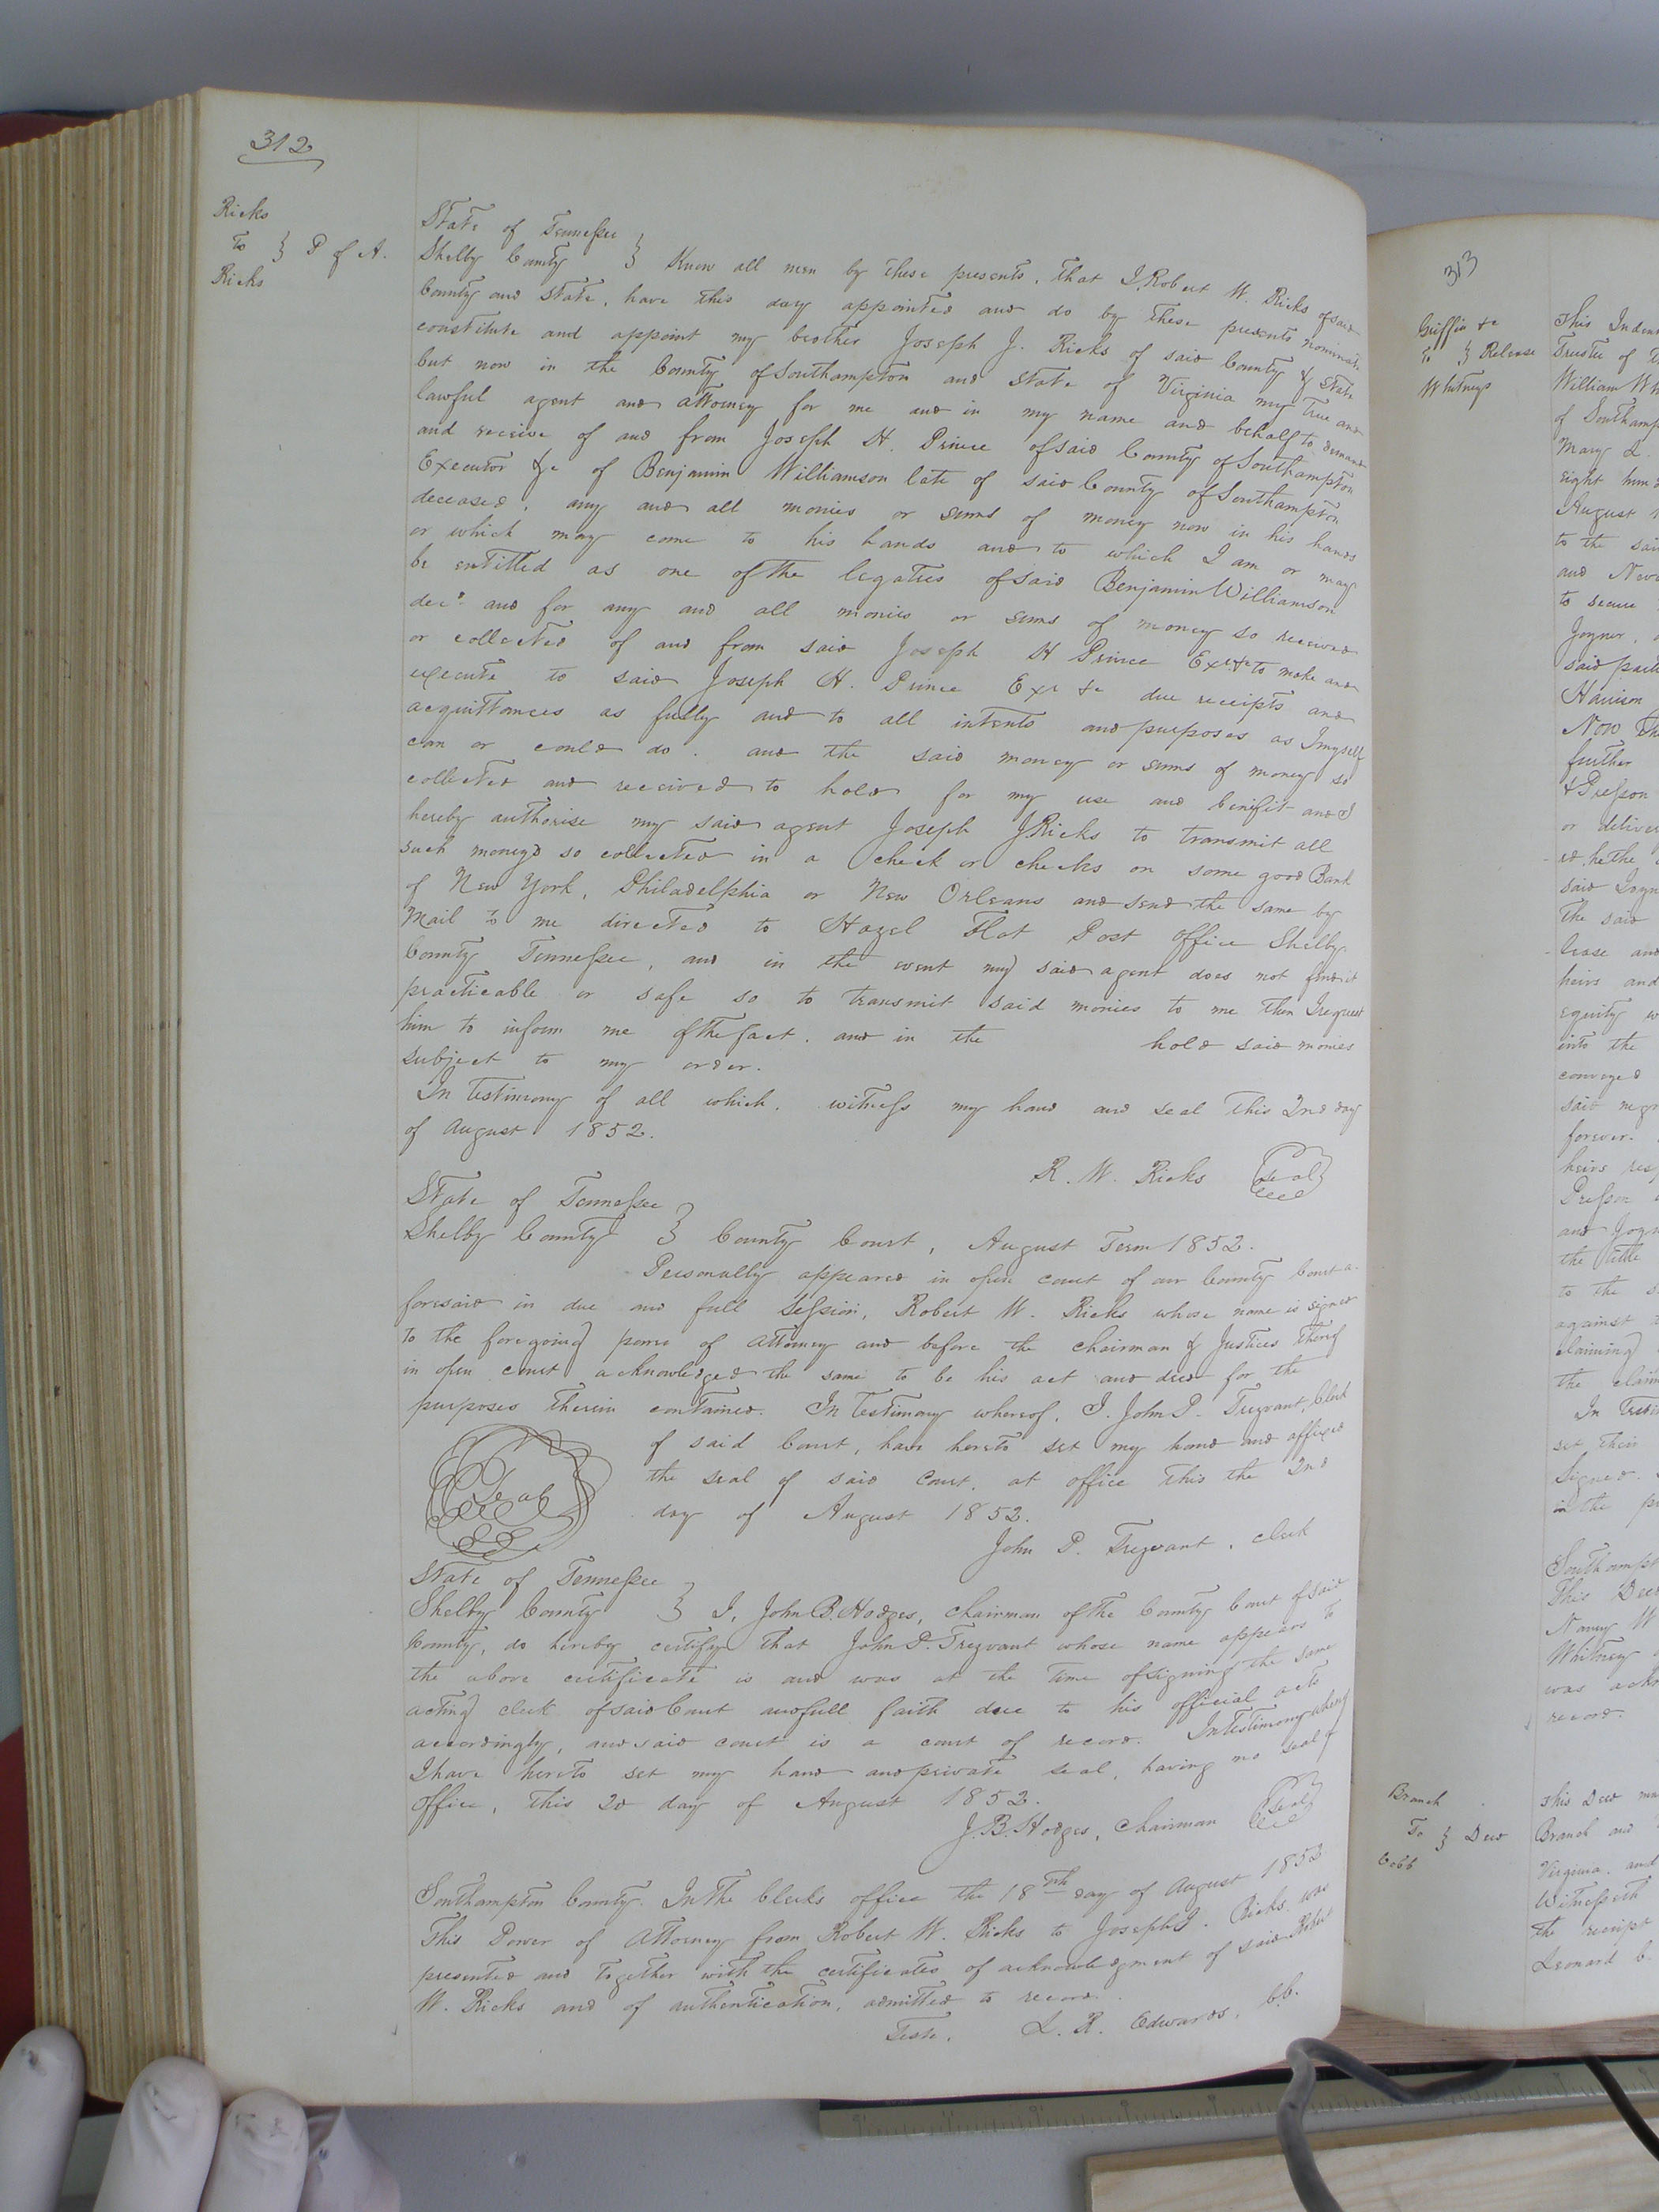 312
Ricks
To } P of A.
Ricks
State of Tennessee }
Shelby County } Know all men by these presents, that I, Robert W. Ricks of said
County and State, have this day appointed and do by these presents nominate
constitute and appoint my brother Joseph J. Ricks of said County & State
but now in the County of Southampton and State of Virginia my true and
lawful agent and attorney for me and in my name and behalf to demand
and receive of and from Joseph H. Prince of said County of Southampton
Executor &c of Benjamin Williamson late of said County of Southampton
deceased, any and all monies or sums of money now in his hands
or which may come to his hands and to which I am or may
be entitled as one of the legatees of said Benjamin Williamson
decd. and for any and all monies or sums of money so received
or collected of and from said Joseph H Prince Exr. &c to make and
execute to said Joseph H. Prince Exr &c due receipts and
acquittances as fully and to all intents and purposes as I myself
can or could do. and the said money or sums of money so
collected and received to hold for my use and benifit and I
hereby authorise my said agent Joseph J Ricks to transmit all
such moneys so collected in a check or checks on some good Bank
of New York, Philadelphia or New Orleans and send the same by
Mail to me directed to Hazel Flat Post office Shelby
County Tennessee, and in the event my said agent does not find it
practicable or safe so to transmit said monies to me then I request
him to inform me of the fact. and in the hold said monies
subject to my order.
In testimony of all which, witness my hand and seal this 2nd day
of August 1852.
R. W. Ricks Seal
State of Tennessee }
Shelby County } County Court, August Term 1852.
Personally appeared in open court of our County Court a-
foresaid in due and full session, Robert W. Ricks whose name is signed
to the foregoing power of attorney and before the chairman & Justices thereof
in open court acknowledged the same to be his act and deed for the
purposes therein contained. In testimony whereof, I. John P. Trezvant, Clerk
of said Court, have hereto set my hand and affixed
Seal
the seal of said Court. at office this the 2nd
day of August 1852.
John P. Trezvant, clerk
State of Tennessee }
Shelby County } I, John B. Hodges, chairman of the County Court of said
County, do hereby certify that John P. Trezvant whose name appears to
the above certificate is and was at the time of signing the same
acting clerk of said Court and full faith due to his official acts
accordingly, and said court is a court of record. In testimony whereof
I have hereto set my hand and private seal, having no seal of
office, this 2d day of August 1852.
J. B. Hodges, Chairman Seal
Southampton County. In the clerks office the 18th day of August 1852
This Power of Attorney from Robert W. Ricks to Joseph J. Ricks was
presented and together with the certificates of acknowledgment of said Robert
W. Ricks and of authentication, admitted to record.
Teste, L. R. Edwards, C.C.
313
Griffin &c
To } Release
Whitneys
This Inden
Trustee of
William Wh
of Southamp
Mary L.
right hund
August
to the sai
and New
to secure
Joyner,
said part
Harrison
Now Th
further
& Presson
or deliver
said Joyn
the said
lease and
heirs and
equity
into the
conveyed
said neg
forever.
heirs resp
Presson
and Joyn
the title
to the s
against
claiming
the claim
In Testim
set their
Signed.
in the p
Southampt
This Deed
Nancy W
Whitney
was ackn
record.
Branch
To } Deed
Cobb
This Deed ma
Branch and
Virginia, and
Witnesseth
the receipt
Leonard C.